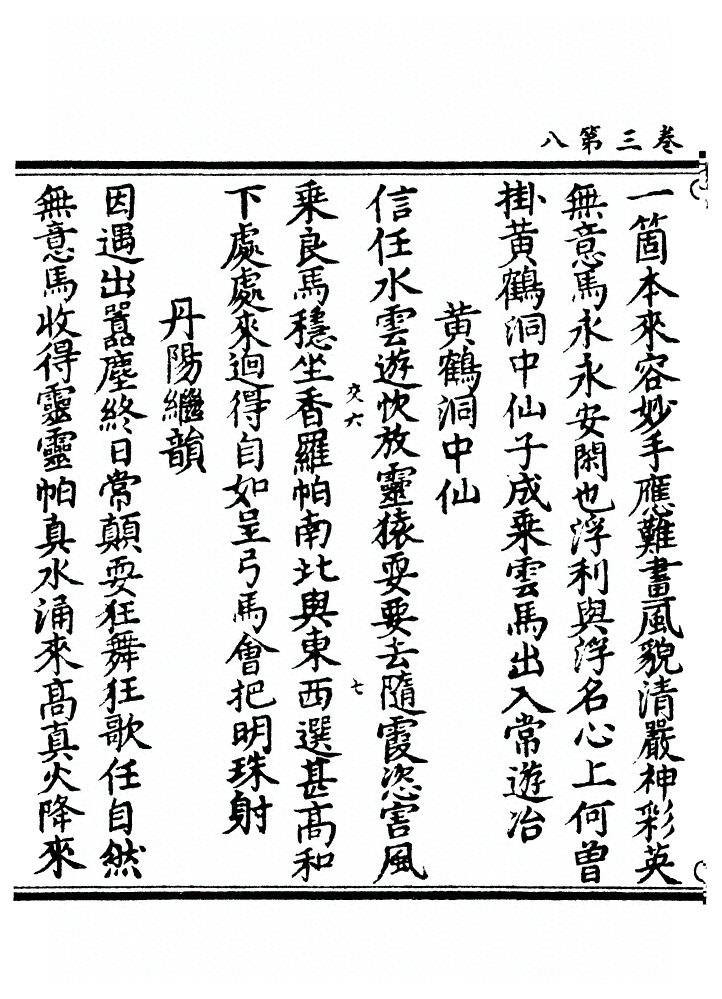 卷三第八
一箇本來容妙手應難畫風貌清嚴神彩英
無意馬永永安閑也浮利與浮名心上何曾
掛黃鶴洞中仙子成乘雲馬出入常遊冶
黃鶴洞中仙
信任水雲遊忺放靈猿耍要去隨霞恣害風
交六
七
乘良馬穩坐香羅帕南北與東西選甚高和
下處處來迴得自如呈弓馬會把明珠射
丹陽繼韻
因遇出囂塵終日常顛耍狂舞狂歌任自然
無意馬收得靈靈帕真水涌來高真火降來